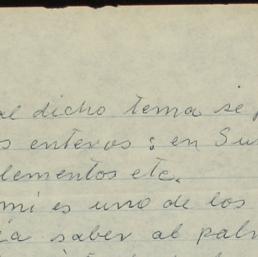 al dicho tema se
s enteros: en Su
lementos etc.
mi es uno de los
ia saber al pal